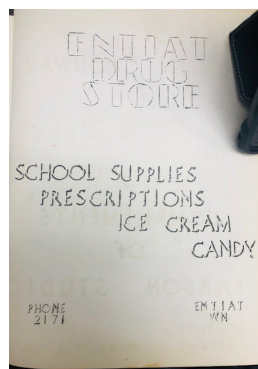 ENTIAT
DRUG
STORE
SCHOOL SUPPLIES
PRESCRIPTIONS
ICE CREAM
CANDY
PHONE
2171
ENTIAT
WN